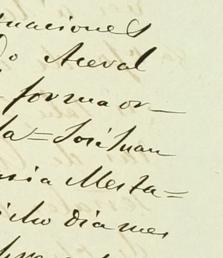 tuaciones
Aceval
forma or_
la=José Juan
ria Mesta=
icho dia mes